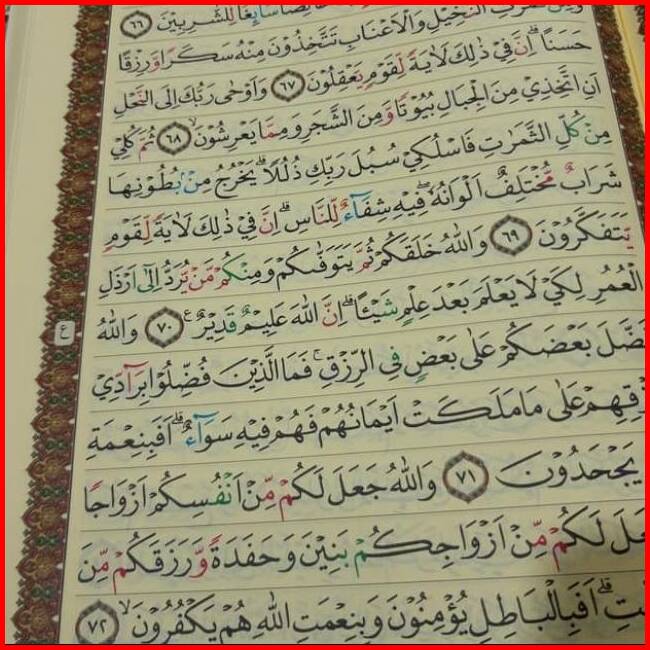 خَالِصًا سَٓائِغًا لِلشَّارِب۪ينَ ﴿٦٦﴾
وَمِنْ ثَمَرَاتِ النَّخ۪يلِ وَالْاَعْنَابِ تَتَّخِذُونَ مِنْهُ سَكَرًا وَرِزْقًا
حَسَنًاۜ اِنَّ ف۪ي ذٰلِكَ لَاٰيَةً لِقَوْمٍ يَعْقِلُونَ ﴿٦٧﴾ وَاَوْحٰى رَبُّكَ اِلَى النَّحْلِ
اَنِ اتَّخِذ۪ي مِنَ الْجِبَالِ بُيُوتًا وَمِنَ الشَّجَرِ وَمِمَّا يَعْرِشُونَۙ ﴿٦٨﴾ ثُمَّ كُل۪ي
مِنْ كُلِّ الثَّمَرَاتِ فَاسْلُك۪ي سُبُلَ رَبِّكِ ذُلُلًاۜ يَخْرُجُ مِنْ بُطُونِهَا
شَرَابٌ مُخْتَلِفٌ اَلْوَانُهُ ف۪يهِ شِفَٓاءٌ لِلنَّاسِۜ اِنَّ ف۪ي ذٰلِكَ لَاٰيَةً لِقَوْمٍ
يَتَفَكَّرُونَ ﴿٦٩﴾ وَاللّٰهُ خَلَقَكُمْ ثُمَّ يَتَوَفّٰيكُمْ وَمِنْكُمْ مَنْ يُرَدُّ اِلٰٓى اَرْذَلِ
الْعُمُرِ لِكَيْ لَا يَعْلَمَ بَعْدَ عِلْمٍ شَيْـًٔاۜ اِنَّ اللّٰهَ عَل۪يمٌ قَد۪يرٌ۟ ﴿٧٠﴾ وَاللّٰهُ
فَضَّلَ بَعْضَكُمْ عَلٰى بَعْضٍ فِي الرِّزْقِۚ فَمَا الَّذ۪ينَ فُضِّلُوا بِرَٓادّ۪ي
رِزْقِهِمْ عَلٰى مَا مَلَكَتْ اَيْمَانُهُمْ فَهُمْ ف۪يهِ سَوَٓاءٌۜ اَفَبِنِعْمَةِ
يَجْحَدُونَ ﴿٧١﴾ وَاللّٰهُ جَعَلَ لَكُمْ مِنْ اَنْفُسِكُمْ اَزْوَاجًا
جَعَلَ لَكُمْ مِنْ اَزْوَاجِكُمْ بَن۪ينَ وَحَفَدَةً وَرَزَقَكُمْ مِنَ
اَفَبِالْبَاطِلِ يُؤْمِنُونَ وَبِنِعْمَتِ اللّٰهِ هُمْ يَكْفُرُونَۙ ﴿٧٢﴾
ع